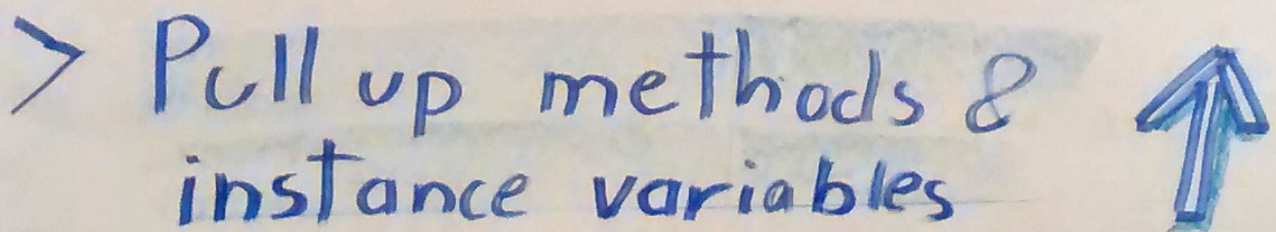 > Pull up methods &
instance variables